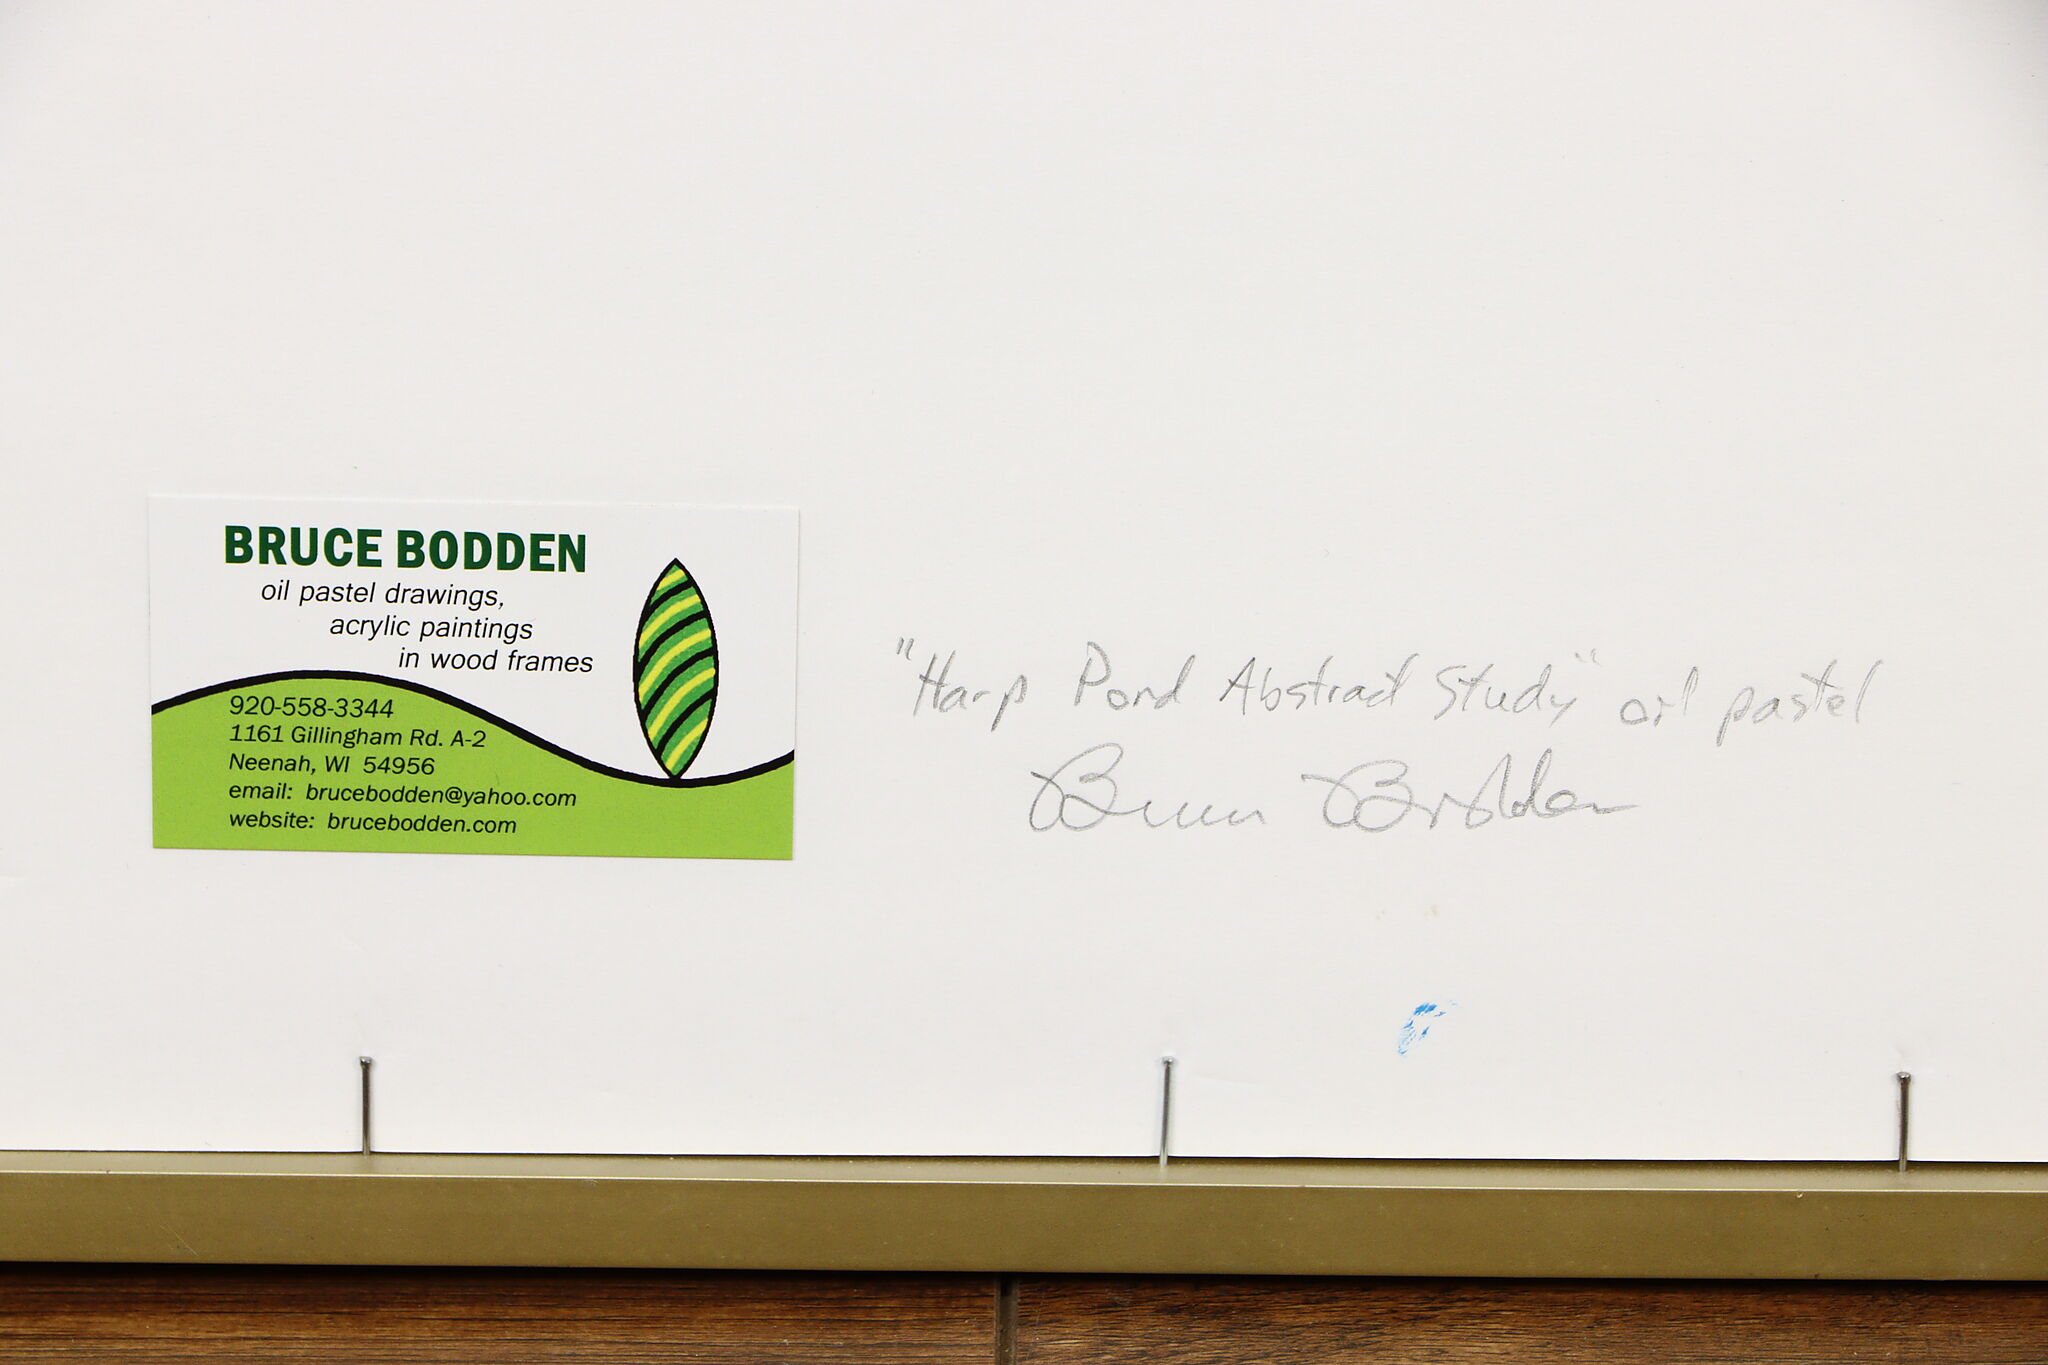 BRUCE BODDEN
oil pastel drawings,
acrylic paintings
in wood frames
920-558-3344
1161 Gillingham Rd. A-2
Neenah, WI 54956
email: brucebodden@yahoo.com
website: brucebodden.com
"Harp Pond Abstract Study" oil pastel
Bruce Bodden